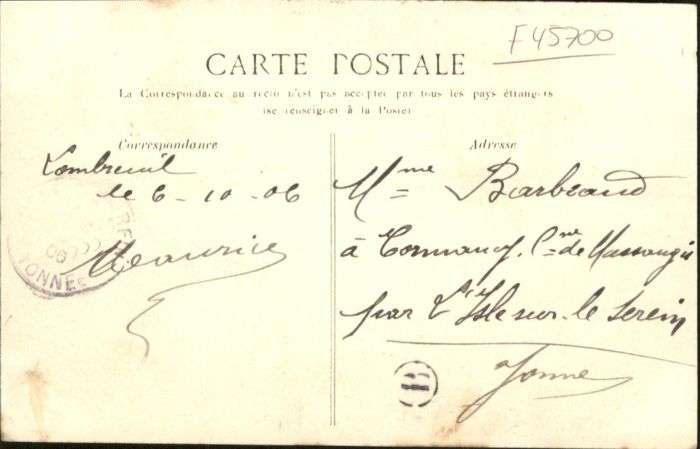 F 45700
CARTE POSTALE
La Correspondance au recto n'est pas acceptée par tous les pays étrangers
(se renseigner à la Poste)
Correspondance
Adresse
Lombreuil
le 6-10-06
Maurice
YONNE
Mme Barbeaud
à Tormancy. Cne de Massangis
par L'Isle sur le Serein
Yonne
B